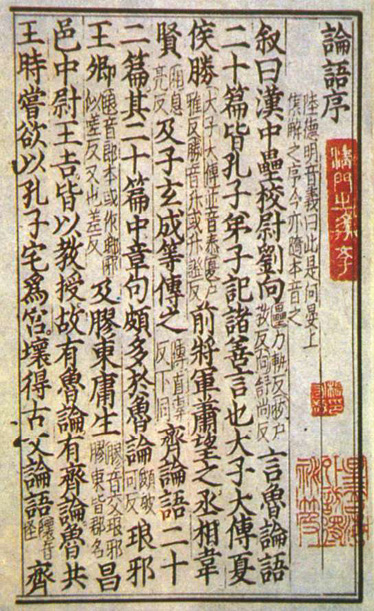 論語序 陸德明音義曰此是何晏上集解之序今亦隨本音之
叙曰漢中壘校尉劉向壘力軌反校戶教反向舒尚反言魯論語
二十篇皆孔子弟子記諸善言也大子大傅夏
侯勝大子大傅並音泰夏戶雅反勝音升或升證反前將軍蕭望之丞相韋
賢相息亮反及子玄成等傳之傳直專反下同齊論語二十
二篇其二十篇中章句頗多於魯論頗破何反琅邪
王卿琅音郎本或作瑯邪似差反又也差反及膠東庸生膠音交琅邪膠東皆郡名昌
邑中尉王吉皆以教授故有魯論有齊論魯共
王時嘗欲以孔子宅爲宮壞得古文論語壞音怪齊